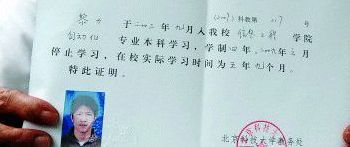 (2009)科教第 217 号
于二〇〇三年九月入我校信息工程学院
自动化专业本科学习，学制四年，二〇〇九年 月
停止学习，在校实际学习时间为五年九个月。
特此证明。
北京科技大学教务处